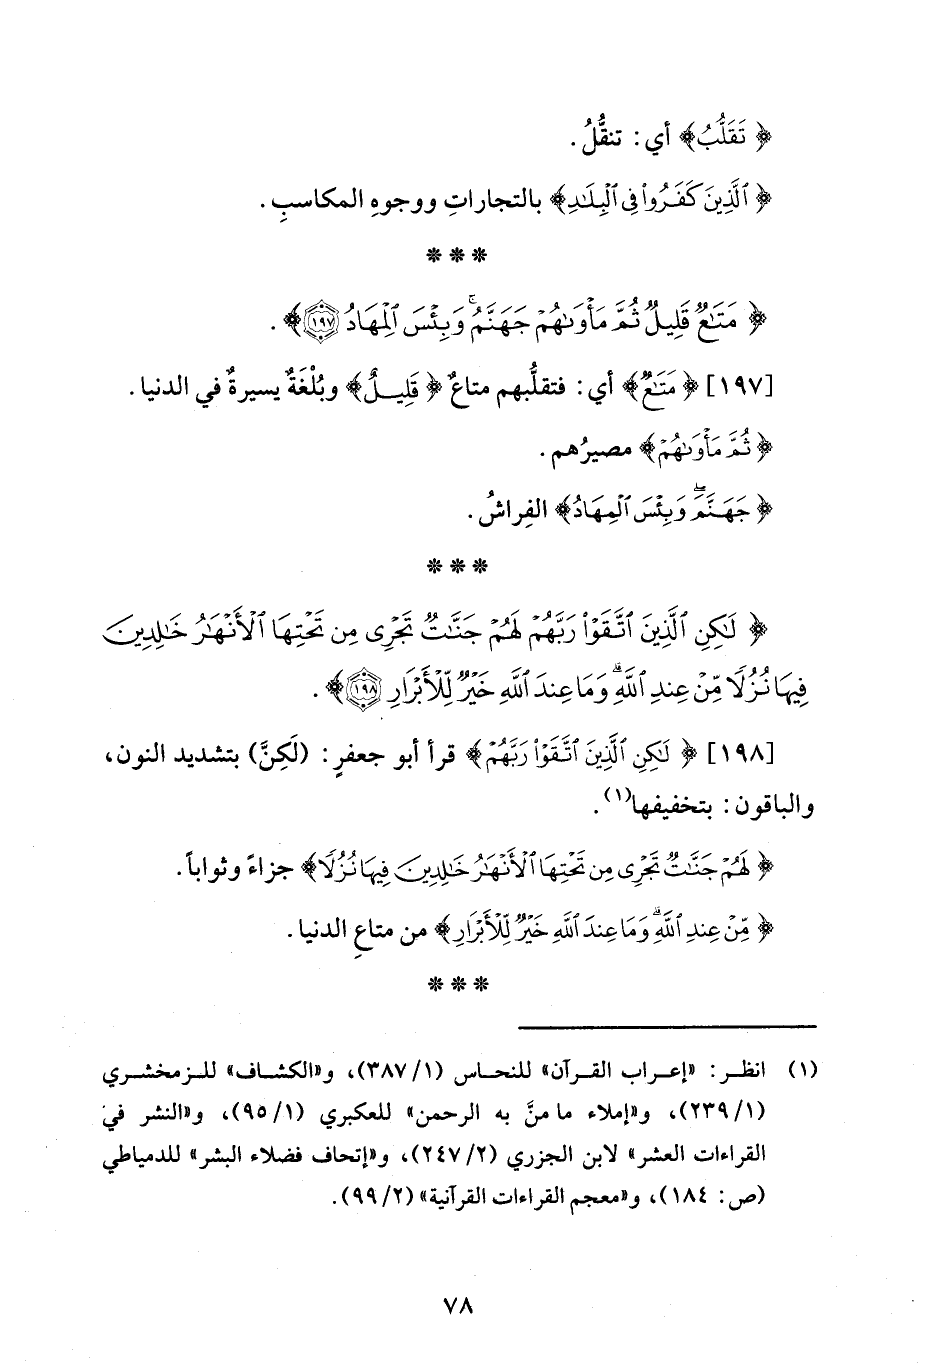 ﴿ تَقَلُّبُ﴾ أي: تنقُّلُ.
﴿ ٱلَّذِينَ كَفَرُوا۟ فِى ٱلْبِلَـٰدِ﴾ بالتجاراتِ ووجوهِ المكاسبِ.
* * *
﴿ مَتَـٰعٌ قَلِيلٌ ثُمَّ مَأْوَىٰهُمْ جَهَنَّمُ ۚ وَبِئْسَ ٱلْمِهَادُ ١٩٧﴾.
[١٩٧] ﴿ مَتَـٰعٌ﴾ أي: فتقلُّبهم متاعٌ ﴿ قَلِيلٌ﴾ وبُلْغَةٌ يسيرةٌ في الدنيا.
﴿ ثُمَّ مَأْوَىٰهُمْ﴾ مصيرُهم.
﴿ جَهَنَّمُ ۖ وَبِئْسَ ٱلْمِهَادُ﴾ الفِراشُ.
* * *
﴿ لَـٰكِنِ ٱلَّذِينَ ٱتَّقَوْا۟ رَبَّهُمْ لَهُمْ جَنَّـٰتٌ تَجْرِى مِن تَحْتِهَا ٱلْأَنْهَـٰرُ خَـٰلِدِينَ
فِيهَا نُزُلًا مِّنْ عِندِ ٱللَّهِ ۗ وَمَا عِندَ ٱللَّهِ خَيْرٌ لِّلْأَبْرَارِ ١٩٨﴾.
[١٩٨] ﴿ لَـٰكِنِ ٱلَّذِينَ ٱتَّقَوْا۟ رَبَّهُمْ﴾ قرأ أبو جعفرٍ: (لَكِنَّ) بتشديد النون،
والباقون: بتخفيفها(١).
﴿ لَهُمْ جَنَّـٰتٌ تَجْرِى مِن تَحْتِهَا ٱلْأَنْهَـٰرُ خَـٰلِدِينَ فِيهَا نُزُلًا﴾ جزاءً وثواباً.
﴿ مِّنْ عِندِ ٱللَّهِ ۗ وَمَا عِندَ ٱللَّهِ خَيْرٌ لِّلْأَبْرَارِ﴾ من متاعِ الدنيا.
* * *
(١) انظر: «إعراب القرآن» للنحاس (١/ ٣٨٧)، و«الكشاف» للزمخشري
(١/ ٢٣٩)، و«إملاء ما منَّ به الرحمن» للعكبري (١/ ٩٥)، و«النشر في
القراءات العشر» لابن الجزري (٢/ ٢٤٧)، و«إتحاف فضلاء البشر» للدمياطي
(ص: ١٨٤)، و«معجم القراءات القرآنية» (٢/ ٩٩).
٧٨